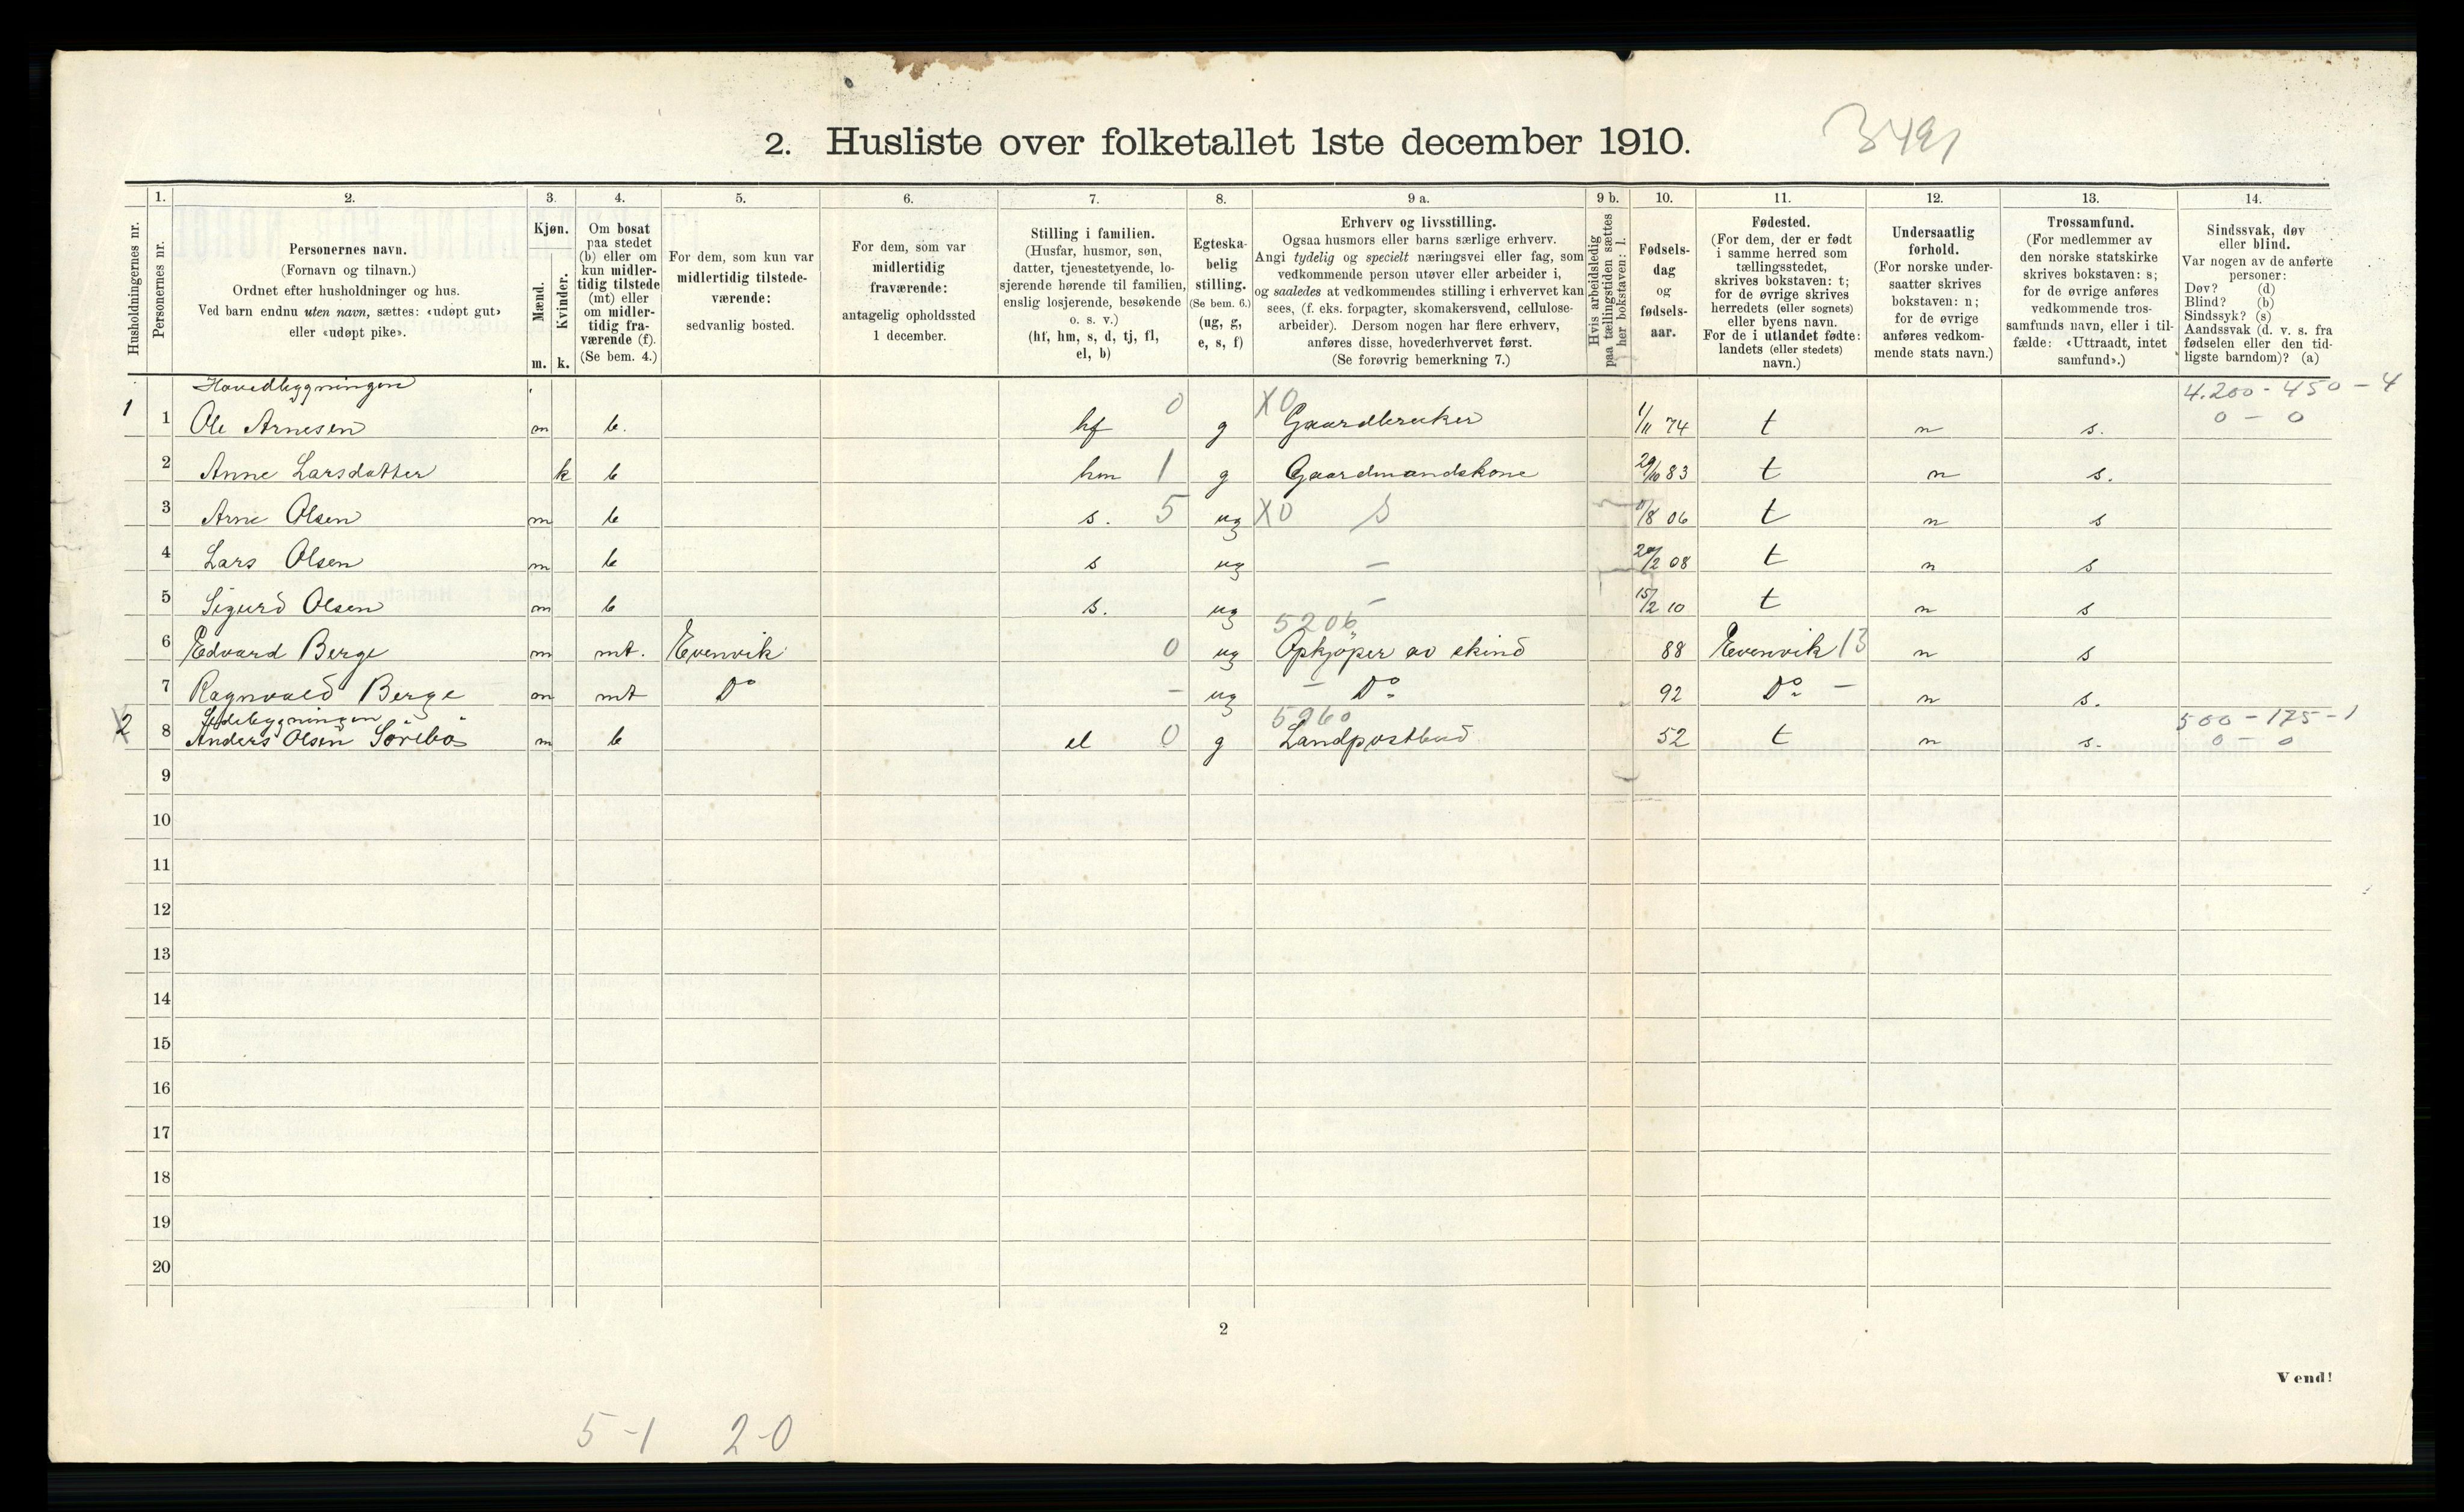 2. Husliste over folketallet 1ste december 1910.
3491
1. 2. 3. 4. 5. 6. 7. 8. 9 a. 9 b. 10. 11. 12. 13. 14.
Husholdningernes nr.
Personernes nr.
Personernes navn.
(Fornavn og tilnavn.)
Ordnet efter husholdninger og hus.
Ved barn endnu uten navn, sættes: «udøpt gut»
eller «udøpt pike».
Kjøn.
Mænd.
Kvinder.
m. k.
Om bosat
paa stedet
(b) eller om
kun midler-
tidig tilstede
(mt) eller
om midler-
tidig fra-
værende (f).
(Se bem. 4.)
For dem, som kun var
midlertidig tilstede-
værende:
sedvanlig bosted.
For dem, som var
midlertidig
fraværende:
antagelig opholdssted
1 december.
Stilling i familien.
(Husfar, husmor, søn,
datter, tjenestetyende, lo-
sjerende hørende til familien,
enslig losjerende, besøkende
o. s. v.)
(hf, hm, s, d, tj, fl,
el, b)
Egteska-
belig
stilling.
(Se bem. 6.)
(ug, g,
e, s, f)
Erhverv og livsstilling.
Ogsaa husmors eller barns særlige erhverv.
Angi tydelig og specielt næringsvei eller fag, som
vedkommende person utøver eller arbeider i,
og saaledes at vedkommendes stilling i erhvervet kan
sees, (f. eks. forpagter, skomakersvend, cellulose-
arbeider). Dersom nogen har flere erhverv,
anføres disse, hovederhvervet først.
(Se forøvrig bemerkning 7.)
Hvis arbeidsledig
paa tællingstiden sættes
her bokstaven: l.
Fødsels-
dag
og
fødsels-
aar.
Fødested.
(For dem, der er født
i samme herred som
tællingsstedet,
skrives bokstaven: t;
for de øvrige skrives
herredets (eller sognets)
eller byens navn.
For de i utlandet fødte:
landets (eller stedets)
navn.)
Undersaatlig
forhold.
(For norske under-
saatter skrives
bokstaven: n;
for de øvrige
anføres vedkom-
mende stats navn.)
Trossamfund.
(For medlemmer av
den norske statskirke
skrives bokstaven: s;
for de øvrige anføres
vedkommende tros-
samfunds navn, eller i til-
fælde: «Uttraadt, intet
samfund».)
Sindssvak, døv
eller blind.
Var nogen av de anførte
personer:
Døv? (d)
Blind? (b)
Sindssyk? (s)
Aandssvak (d. v. s. fra
fødselen eller den tid-
ligste barndom)? (a)
Hovedbygningen 4.200 - 450 - 4
1 1 Ole Arnesen m b. hf 0 g X0 Gaardbruker 1/11 74 t n s. 0 - 0
2 Anne Larsdatter k b hm 1 g Gaardmandskone 29/10 83 t n s.
3 Arne Olsen m b s. 5 ug X0 S /8 06 t n s
4 Lars Olsen m b s ug — 2/2 08 t n s
5 Sigurd Olsen m b s. ug — 15/2 10 t n s
5206
6 Edvard Berge m mt. Evenvik 0 ug Opkjöper av skind 88 Evenvik 13 n s
7 Ragnvald Berge m mt Do - ug - Do 92 Do - n s.
Sidebygningen 5960 500 - 175 - 1
2 8 Anders Olsen Sörebö m b el 0 g Landpostbud 52 t n s. 0 - 0
9
10
11
12
13
14
15
16
17
18
19
20
2
Vend!
5-1 2-0